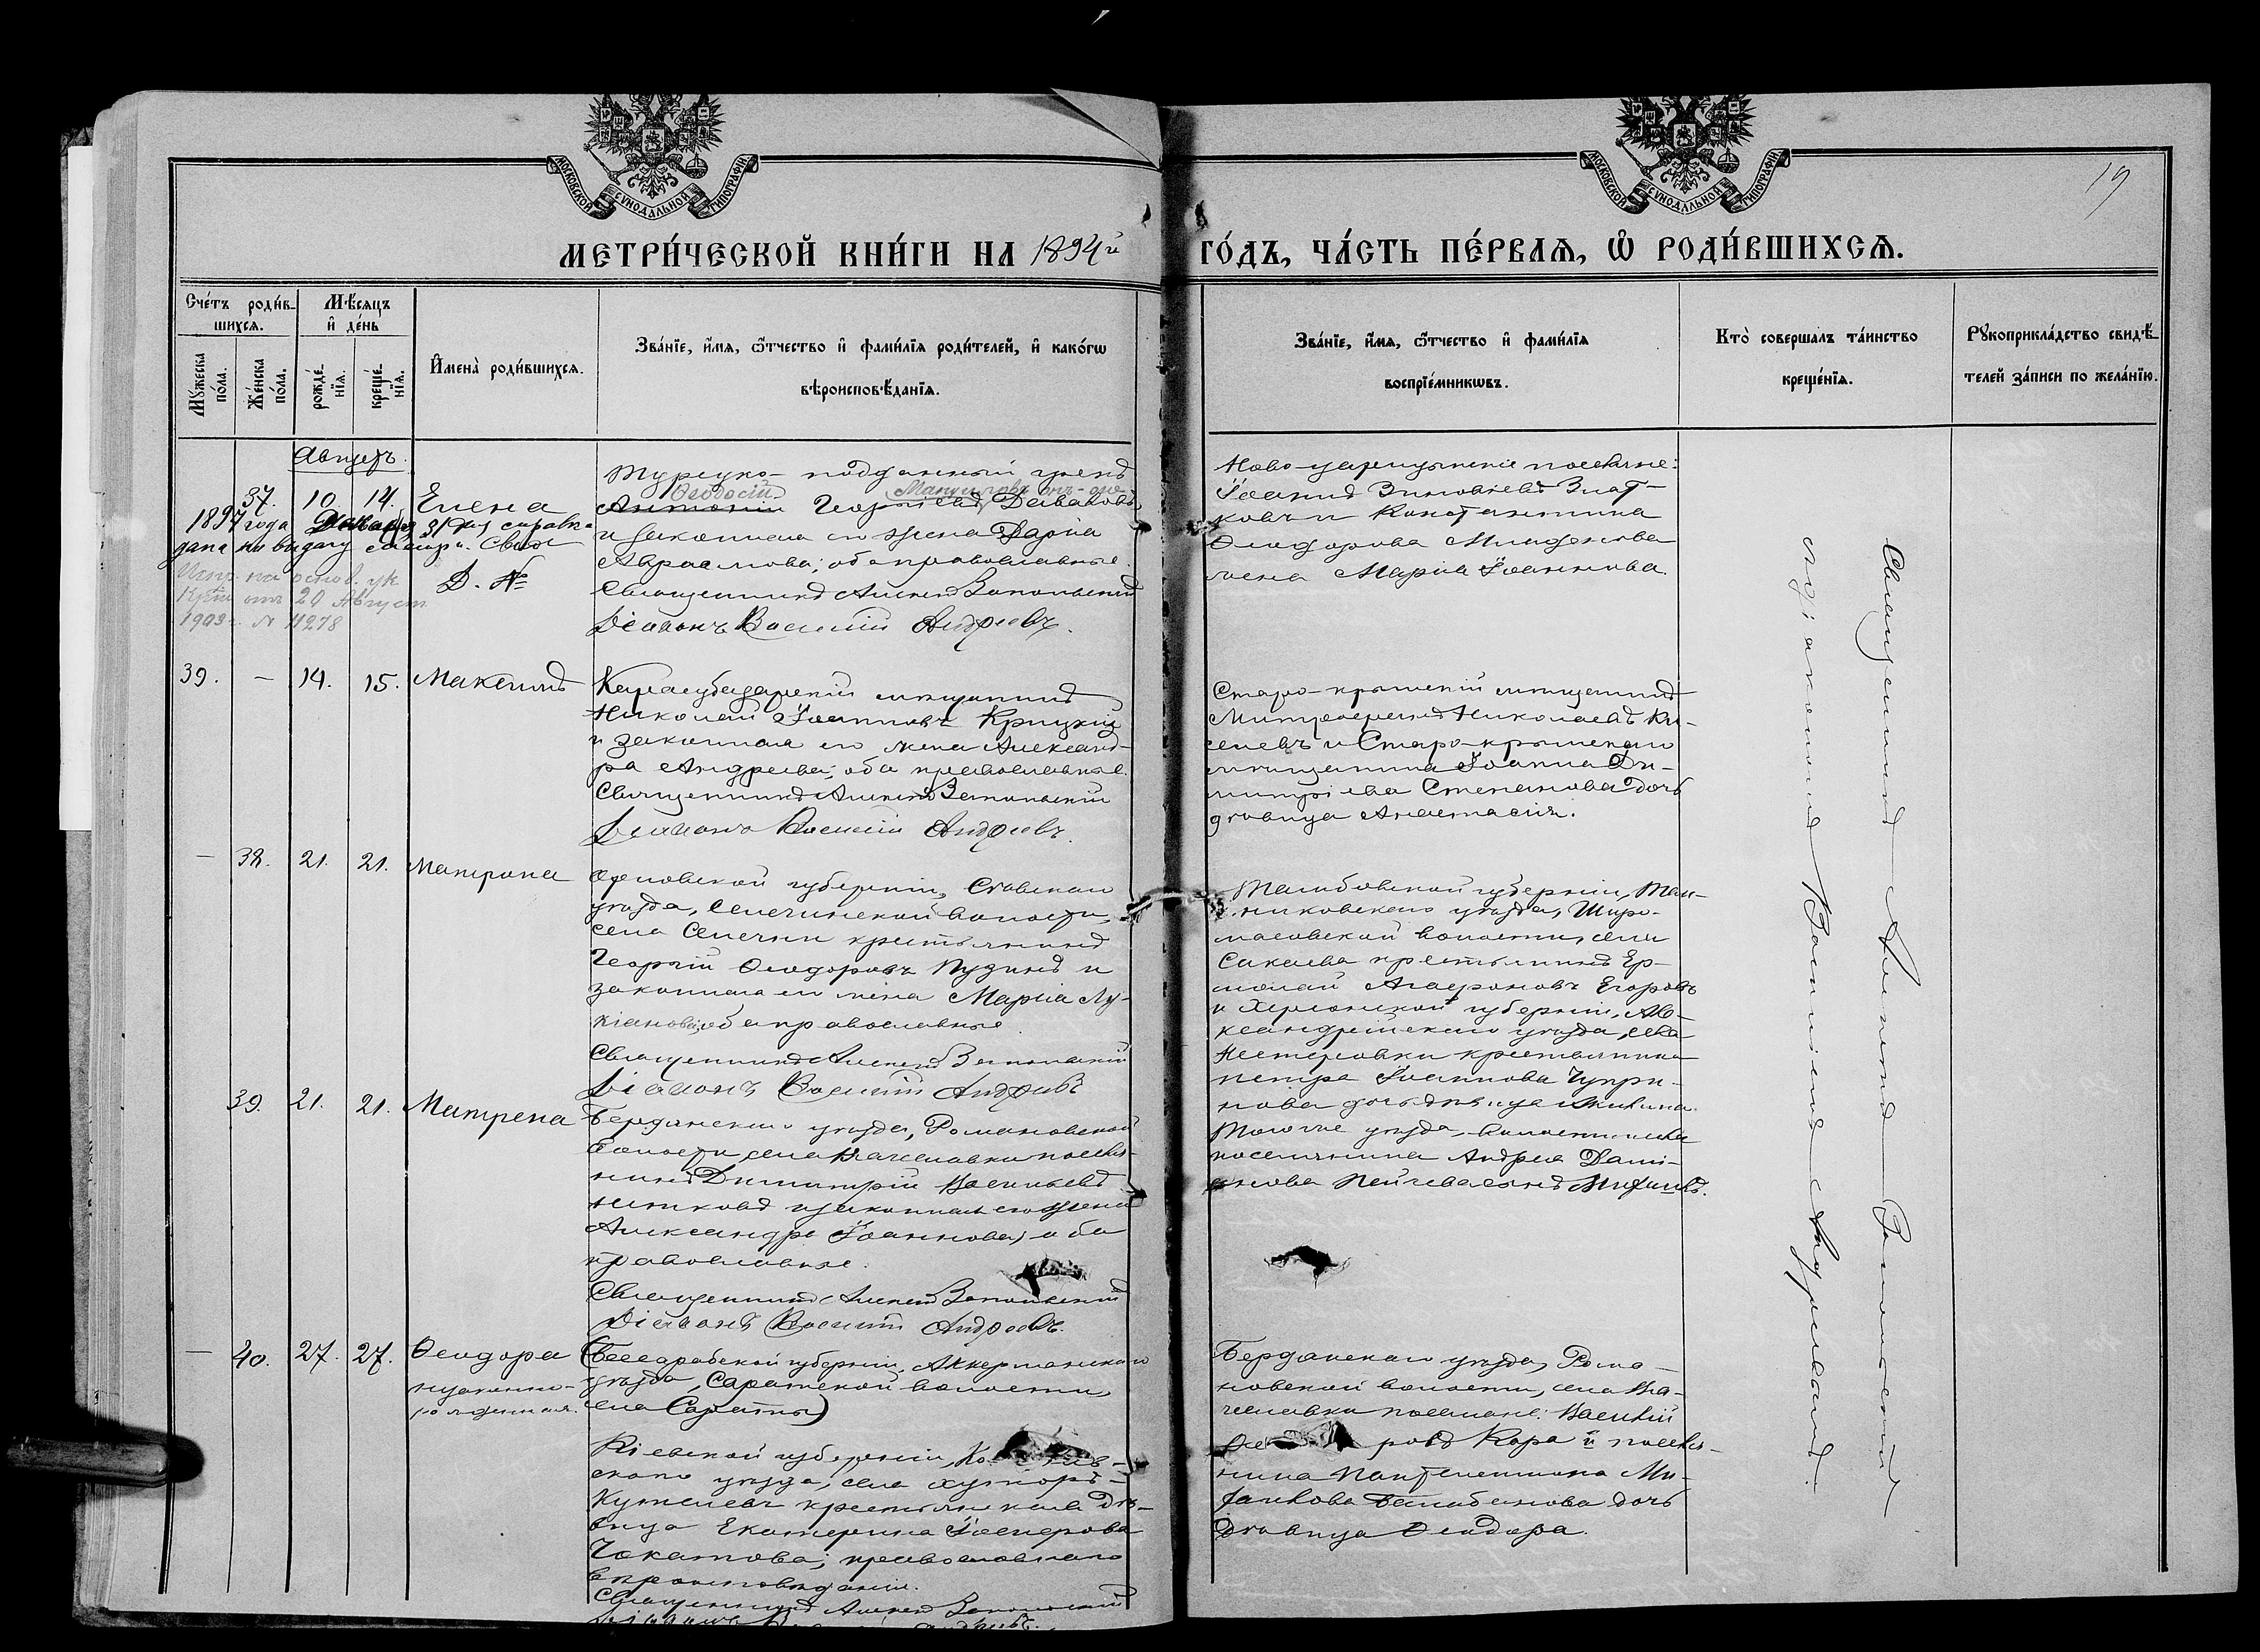 МОСКОВСКОЙ СѴНОДАЛЬНОЙ ТИПОГРАФІИ
МОСКОВСКОЙ СѴНОДАЛЬНОЙ ТИПОГРАФІИ
19
МЕТРИ́ЧЕСКОЙ КНИ́ГИ НА 1894й ГО́ДЪ, ЧА́СТЬ ПЕ́РВАѦ, Ѽ РОДИ́ВШИХСѦ.
Сче́тъ роди́в-
шихсѧ.
Мꙋ́жеска по́ла.
Же́нска по́ла.
Мѣ́сѧцъ
и҆ де́нь
рожде́-
нїѧ.
креще́-
нїѧ.
И҆мена̀ роди́вшихсѧ.
Зва́нїе, и҆́мѧ, ѻ҆́тчество и҆ фами́лїѧ роди́телей, и҆ како́гѡ
вѣроисповѣ́данїѧ.
Зва́нїе, и҆́мѧ, ѻ҆́тчество и҆ фами́лїѧ
воспрїе́мникѡвъ.
Кто̀ соверша́лъ та́инство
креще́нїѧ.
Рꙋкоприкла́дство свидѣ́-
телей за́писи по жела́нїю.
Августъ.
37. 10. 14. Елена
1897 года Января 31 дня справка
дана на выдачу метрич. Свид
Д. №
Испр. на основ. ук
от 20 Август
1903 г. № 11278
Турецко-подданный грекъ
Ѳеодосій
Антоній Георгіевъ Деваковъ
и законная его жена Дарія
Авраамова; оба православные.
Священникъ Алексей Запольскій
Діаконъ Василій Андреевъ.
Ново-царицынскіе поселяне:
Іоаннъ Зиновіевъ Злат-
ковъ и Константина
Ѳеодорова
жена Марія Іоаннова.
39. — 14. 15. Максимъ
Карасубазарскій мещанинъ
Николай Іоанновъ Крицкій
и законная его жена Александ-
ра Андреева; оба православные.
Священникъ Алексей Запольскій
Діаконъ Василій Андреевъ.
Старо-крымскій мещанинъ
Митрофанъ Николаевъ Ки-
селевъ и Старо-крымскаго
мещанина Іоанна Ди-
митріева Степанова дочь
девица Анастасія.
— 38. 21. 21. Матрона
Орловской губерніи, Севскаго
уезда, Селечинской волости,
села Селечни крестьянинъ
Георгій Ѳеодоровъ Пузинъ и
законная его жена Марія Лу-
кіанова, оба православные.
Священникъ Алексей Запольскій
Діаконъ Василій Андреевъ
Тамбовской губерніи, Тем-
никовскаго уезда, Широ-
масовской волости, села
Сакаева крестьянинъ Ер-
молай Агафоновъ Егоровъ
и Херсонской губерніи, Алек-
сандрійскаго уезда, села
Нестеровки крестьянина
Петра Іоаннова Чупри-
нова дочь девица Акилина.
39. 21. 21. Матрена
Бердянскаго уезда, Романовской
волости, села Вячеславки поселя-
нинъ Димитрій Васильевъ
и законная его жена
Александра Іоаннова, оба
православные.
Священникъ Алексей Запольскій
Діаконъ Василій Андреевъ.
Того же уезда, волости и села
поселянина Андрея Дамі-
анова Пейчева сынъ Михаилъ.
— 40. 27. 27. Ѳеодора
незаконно-
рожденная.
(Бессарабской губерніи, Аккерманскаго
уезда, Саратской волости,
села Сараты)
Кіевской губерніи,
скаго уезда, села хуторъ-
крестьянская де-
вица Екатерина
православнаго
вероисповеданія.
Священникъ Алексей Запольскій
Бердянскаго уезда, Рома-
новской волости, села Вя-
чеславки поселяне: Василій
ровъ Кара и поселя-
нина Пантелеимона Ми-
хайлова дочь
девица Ѳеодора.
Священникъ Алексей Запольскій